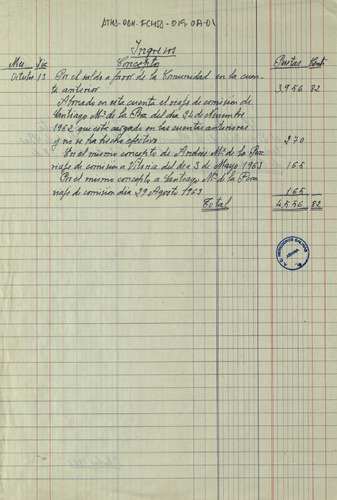 Ingresos
Mes Día Conceptos Pesetas Cent.
Octubre 13 Por el saldo a favor de la Comunidad en la cuen-
ta anterior 3.956 82
Abonado en esta cuenta el viaje de comision de
Santiago Mª de la Poza del día 24 de Noviembre
1962 que esta cargado en las cuentas anteriores
y no se ha hecho efectivo 270
En el mismo concepto de Andres Mª de la Poza
viaje de comision a Vitoria del dia 3 de Mayo 1963 165
Por el mismo concepto a Santiago Mª de la Poza
viaje de comision dia 29 Agosto 1963 165
Total 4.556 82